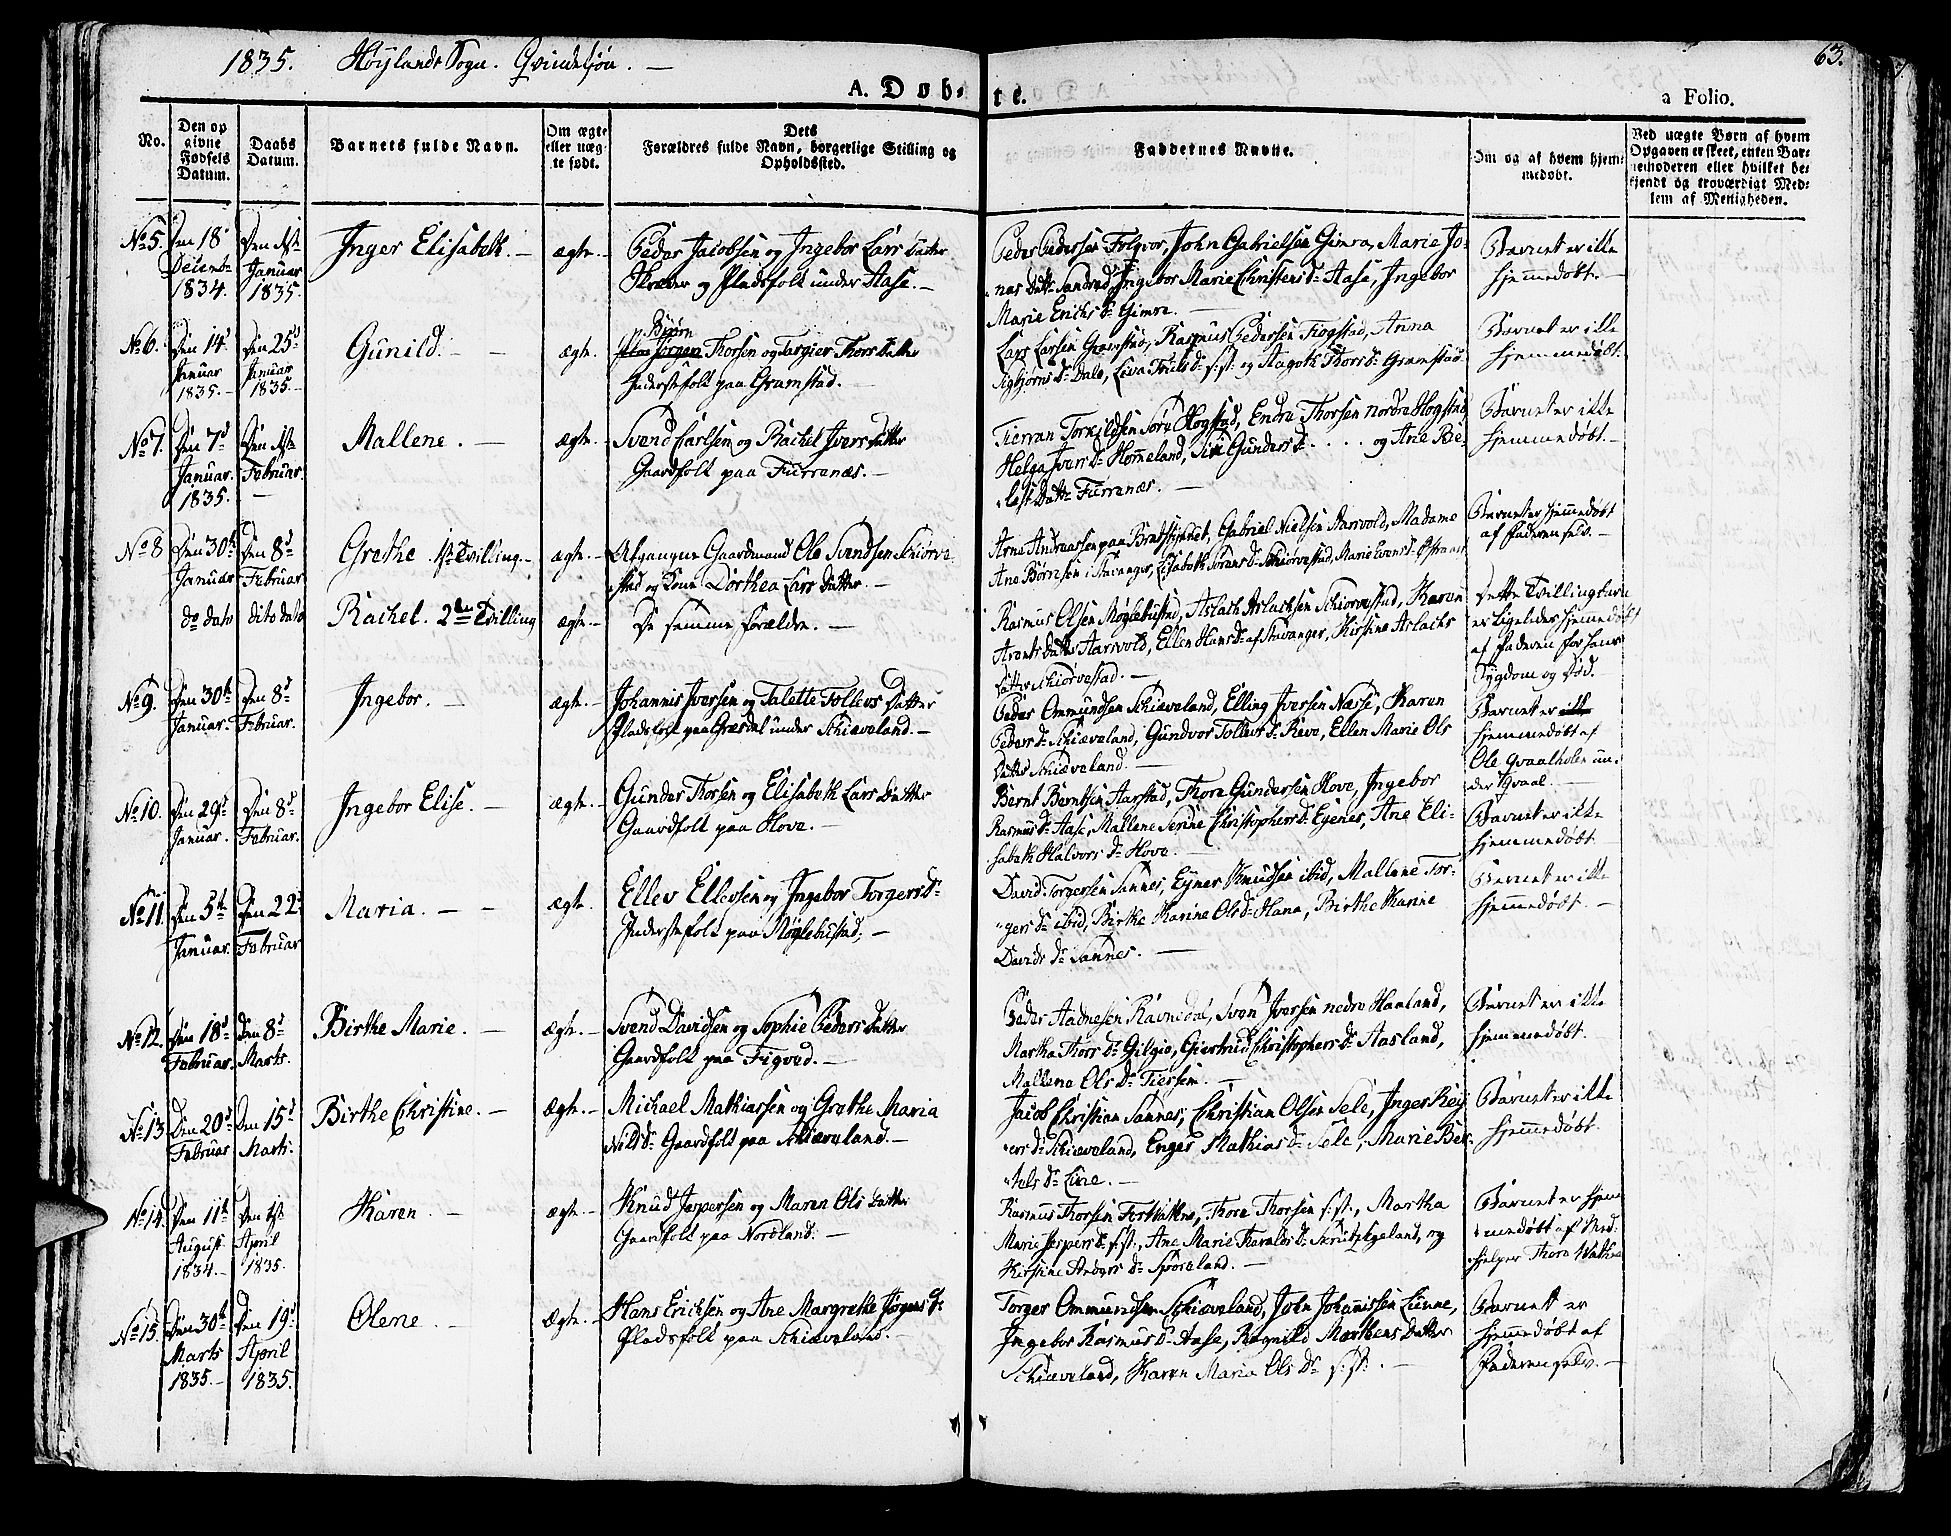 1835. Höylands Sogn. Qvindekjøn. —
63.
A. Døb-
te.
a Folio.
No.
Den op
givne
Fødsels
Datum.
Daabs
Datum.
Barnets fulde Navn.
Om ægte
eller uæg-
te født.
Dets
Forældres fulde Navn, borgerlige Stilling og
Opholdssted.
Faddernes Navne.
Om og af hvem hjem-
medøbt.
Ved uægte Børn af hvem
Opgaven er skeet, enten Bar-
nemoderen eller hvilket be-
kjendt og troværdigt Med-
lem af Menigheden.
No 5.
Den 18
Decemb:
1834.
Den 1ste
Januar
1835.
Inger Elisabeth. —
ægte. —
Peder Jacobsen og Ingebor Lars Datter
Skræder og Pladsfolk under Aase. —
Peder Pedersen Folgvor, John Gabrielsen Gimra, Marie Jo-
nas Datt: Sandved, Ingebor Marie Christens D: Aase, Ingebor
Marie Erichs D: Gimre. —
Barnet er ikke
hjemmedøbt. —
No 6.
Den 14.
Januar
1835. —
Den 25d
Januar
1835. —
Gunild. — —
ægte.
Bjørn
Thorsen og Torgier Thors Datter
Inderstefolk paa Gramstad. —
Lars Larsen Gramstad, Rasmus Pedersen Fiogstad, Anna
Sigbjørns D: Dale, Eeva Friis D: s: st: og Aagoth Thors D: Gramstad
Barnet er ikke
hjemmedøbt.
No 7.
Den 7d
Januar.
1835.
Den 1ste
Februar.
—
Mallene. —
ægte. —
Svend Carlsen og Rachel Ivers Datter
Gaardfolk paa Furranæs. —
Tierran Torkildsen Søre Hogstad, Endre Thorsen nordre Hogstad,
Helga Ivers D: Hommeland, Siri Gunders D: . . . . og Ane Rie-
lefs Datt: Furrenæs. —
Barnet er ikke
hjemmedøbt. —
No 8
Den 30te
Januar
Den 8d
Februar
Grethe. 1ste Tvilling. —
ægte. —
Afgangne Gaardmand Ole Svendsen Schiørve-
stad og Kone Dorthea Lars Datter. —
Arne Andreassen paa Bratstykket, Gabriel Nielsen Aarsvold, Madame
Ane Børnsen i Stavanger, Elisabeth Sørens D: Schiørvestad, Marie Evens D: Østraat
Barnet er hjemmedøbt
af Faderen selv. —
do dato
dito dato
Rachel. 2den Tvilling
ægte. —
De samme Forældre. —
Rasmus Olsen Møglebustad, Aslach Aslachsen Schiørvestad, Karen
Arents Datter Aarsvold, Ellen Hans D: af Stavanger, Kirstine Aslachs
Datter Schiørvestad. —
Dette Tvillingbarn
er ligeledes hjemmedøbt
af Faderen for hans
Sygdom og Død.
No 9.
Den 30te
Januar.
Den 8d
Februar.
Ingebor. —
ægte. —
Johannis Iversen og Talette Tollevs Datter
Pladsfolk paa Græsdal under Schiæveland. —
Peder Ommundsen Schiæveland, Elling Iversen Næsse, Karen
Peders D: Schiæveland, Gundvor Tollevs D: Reve, Ellen Marie Ols
Datter Schiæveland. —
Barnet er ikke
hjemmedøbt af
Ole Qvaalholen un-
der Qvaal
No 10.
Den 29d
Januar.
Den 8d
Februar.
Ingebor Elise. —
ægte. —
Gunder Thorsen og Elisabeth Lars Datter
Gaardfolk paa Hove. —
Bernt Berntsen Aarstad, Thore Gundersen Hove, Ingebor
Rasmus D: Aase, Mallene Serine Christophers D: Egenes, Ane Eli-
sabeth Halvors D: Hove. —
Barnet er ikke
hjemmedøbt
No 11
Den 5te
Januar.
Den 22d
Februar
Maria. — —
ægte.
Ellev Ellevsen og Ingebor Torgers D:
Inderstefolk paa Møglebustad, —
David Torgersen Sannes, Ejner Knudsen ibid, Mallene Tor-
gers D: ibid, Birthe Karine Ols D: Hana, Birthe Karine
Davids D: Sannes. —
Barnet er ikke
hjemmedøbt. —
No 12.
Den 18d
Februar.
Den 8d
Marts.
Birthe Marie. —
ægte. —
Svend Davidsen og Sophie Peders Datter
Gaardfolk paa Figved. —
Peder Aadnesen Ravnedal, Sven Iversen nedre Haaland,
Martha Thors D: Gilgie, Giertrud Christophers D: Aasland,
Mallena Ols D: Tiersem. —
Barnet er ikke
hjemmedøbt.
No 13
Den 20d
Februar
Den 15d
Marts.
Birthe Christine. —
ægte. —
Michael Mathiassen og Grethe Maria
Nils D: Gaardfolk paa Schiæveland. —
Jacob Christian Sannes, Christian Olsen Sele, Inger Rei-
ers D: Schiæveland, Enger Mathias D: Sele, Marie Ber-
thels D: Line. —
Barnet er ikke
hjemmedøbt.
No 14.
Den 11te
August
1834. —
Den 1ste
April
1835.
Karen —
ægte. —
Knud Jespersen og Maren Ols Datter
Gaardfolk paa Nordland. —
Rasmus Thorsen Forsvatne, Thore Thorsen s: st., Martha
Marie Jespers D: s: st., Ane Marie Tharalds D: Skrudtzegeland, og
Kirstine Anders D: Spøreland. —
Barnet er hjem-
medøbt af Med-
hjelper Thore Watne
No 15.
Den 30te
Marts
1835. —
Den 19d
April
1835.
Olene —
ægte. —
Hans Erichsen og Ane Margrethe Jørgens D:
Pladsfolk paa Schiæveland. —
Torger Ommundsen Schiæveland, John Johanissen Lunne,
Ingebor Rasmus D: Aase, Ragnild Morthens Datter
Schiæveland, Karen Maria Ols D: s: st: . —
Barnet er
hjemmedøbt af
Faderen selv. —